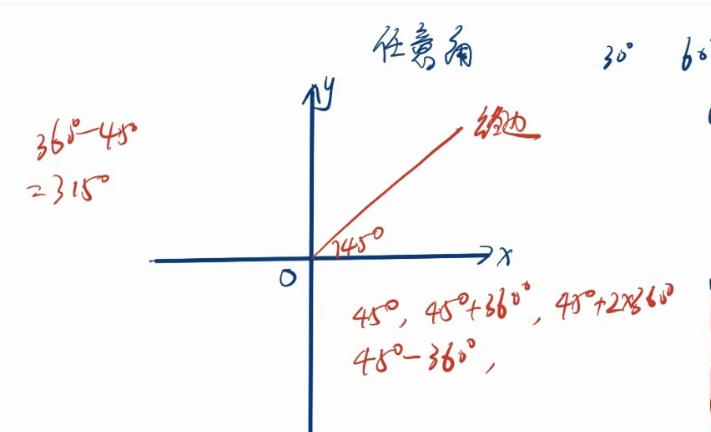 任意角
30° 60°
y
360°-45°
=315°
终边
45°
x
O
45°, 45°+360°, 45°+2×360°
45°-360°,